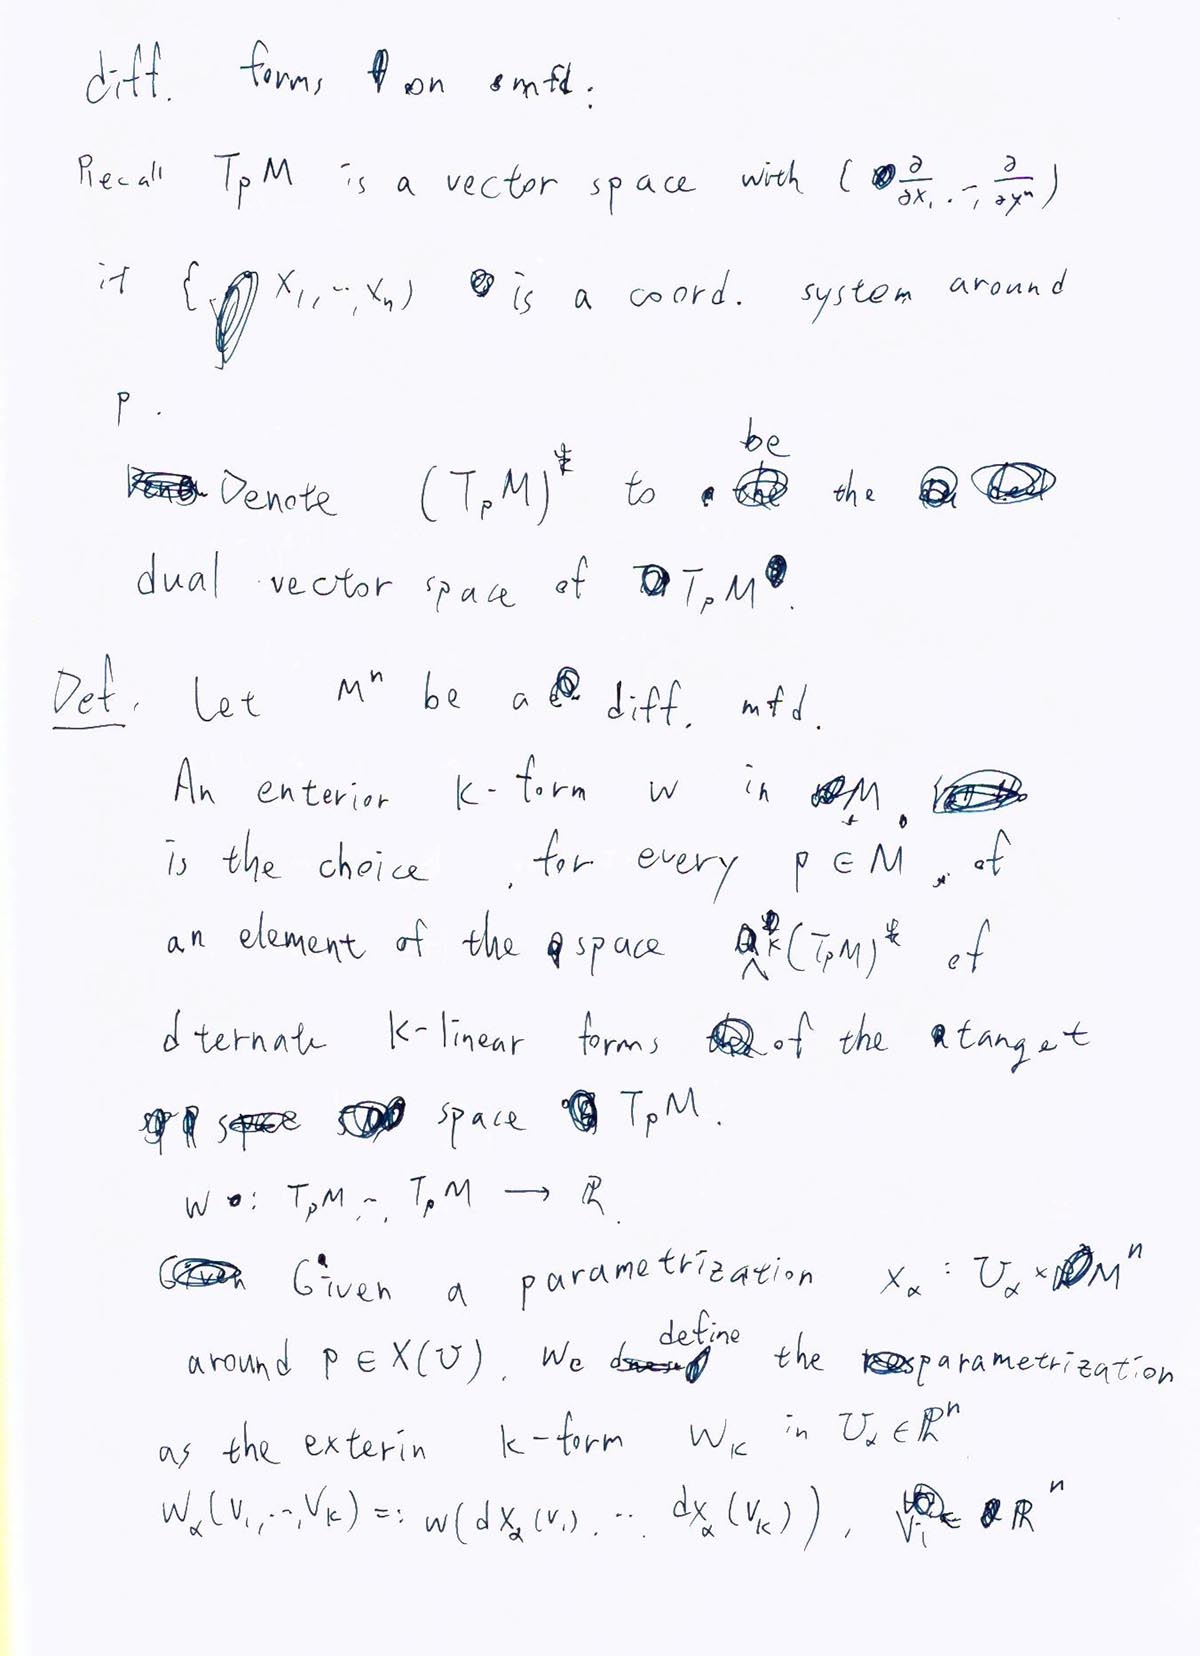 diff. forms on mfd.
Recall TpM is a vector space with ( ∂/∂x₁, .., ∂/∂xⁿ )
if { x₁, .., xₙ) is a coord. system around
p.
Denote (TpM)* to be the
dual vector space of TpM.
Def. Let Mⁿ be a diff. mfd.
An enterior k-form w in M.
is the choice, for every p ∈ M, of
an element of the space Λᵏ(TpM)* of
alternate k-linear forms of the tanget
space TpM.
w : TpM .., TpM → ℝ.
Given a parametrization x_α : U_α × Mⁿ
around p ∈ X(U). We define the parametrization
as the exterin k-form w_k in U_α ∈ ℝⁿ
w_α(v₁, .., v_k) =: w(dx_α(v₁), .. dx_α(v_k)), v_i ∈ ℝⁿ